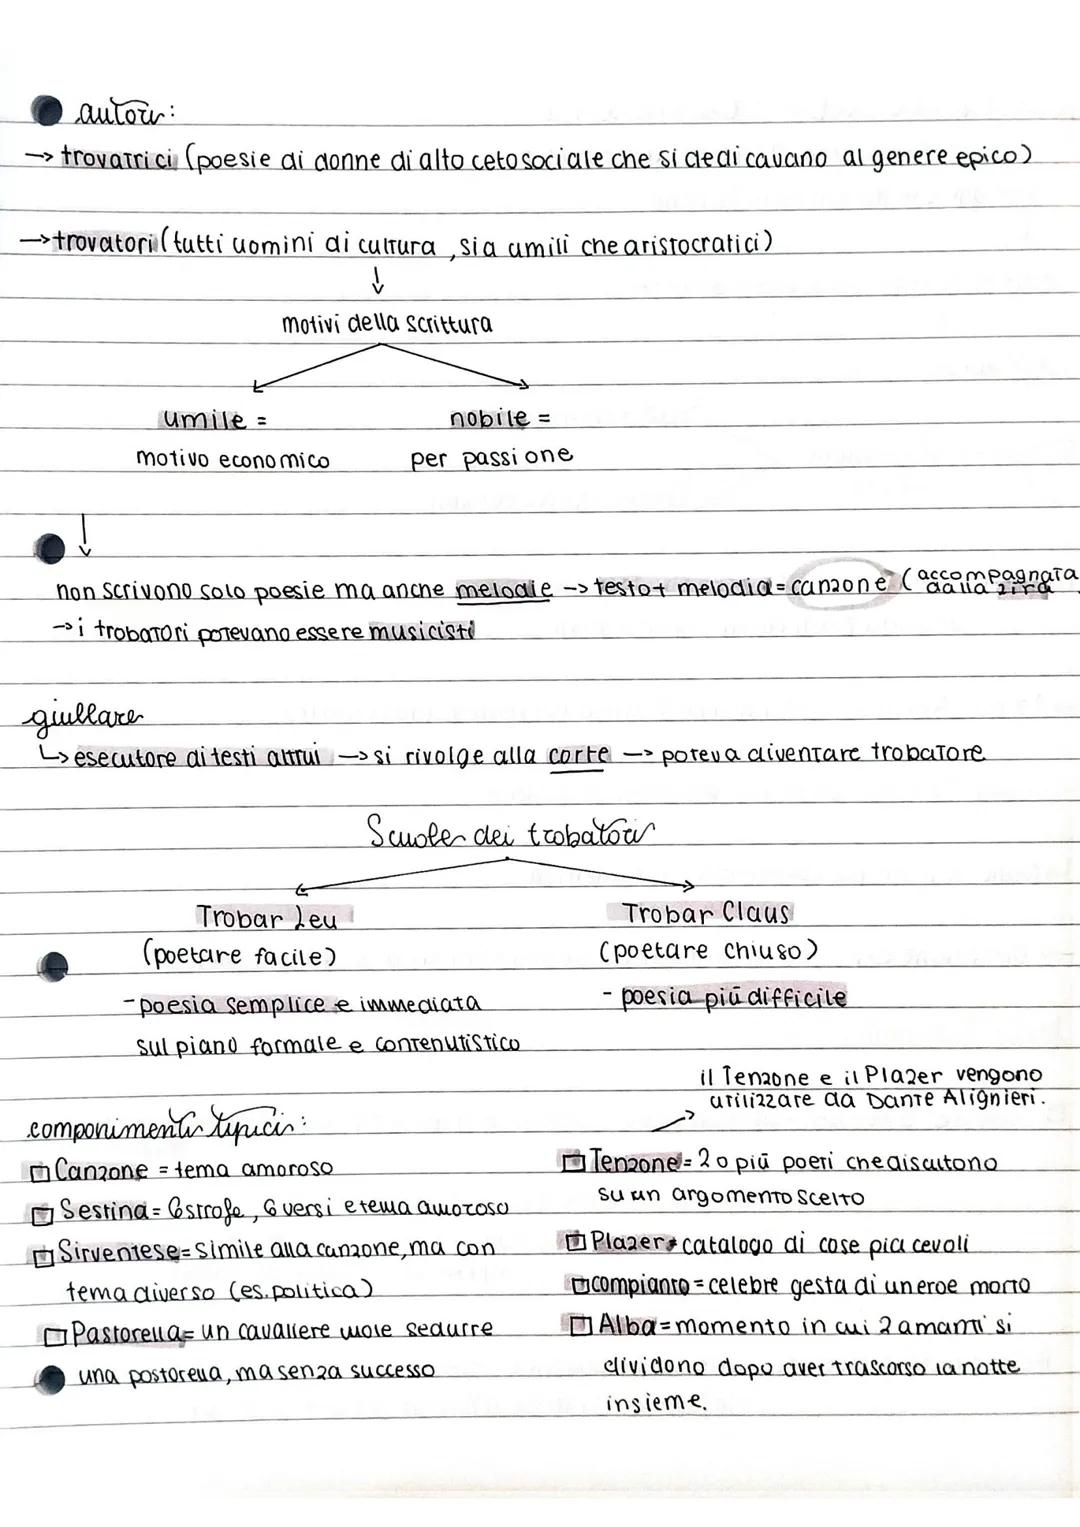 autori:
→ trovatrici (poesie di donne di alto ceto sociale che si dedicavano al genere epico)
→ trovatori (tutti uomini di cultura, sia umili che aristocratici)
↓
motivi della scrittura
umile = nobile =
motivo economico per passione
↓
non scrivono solo poesie ma anche melodie → testo + melodia = canzone (accompagnata
dalla lira
→ i trobatori potevano essere musicisti
giullare
↳ esecutore di testi altrui → si rivolge alla corte → poteva diventare trobatore
Scuole dei trobatori
Trobar Leu Trobar Claus
(poetare facile) (poetare chiuso)
- poesia semplice e immediata - poesia più difficile
sul piano formale e contenutistico
il Tenzone e il Plazer vengono
utilizzare da Dante Alighieri.
componimenti tipici:
Canzone = tema amoroso
Sestina = 6 strofe, 6 versi e tema amoroso
Sirventese = simile alla canzone, ma con
tema diverso (es. politica)
Pastorella = un cavaliere vuole sedurre
una postorella, ma senza successo
Tenzone = 2 o più poeti che discutono
su un argomento scelto
Plazer = catalogo di cose piacevoli
compianto = celebre gesta di un eroe morto
Alba = momento in cui 2 amanti si
dividono dopo aver trascorso la notte
insieme.